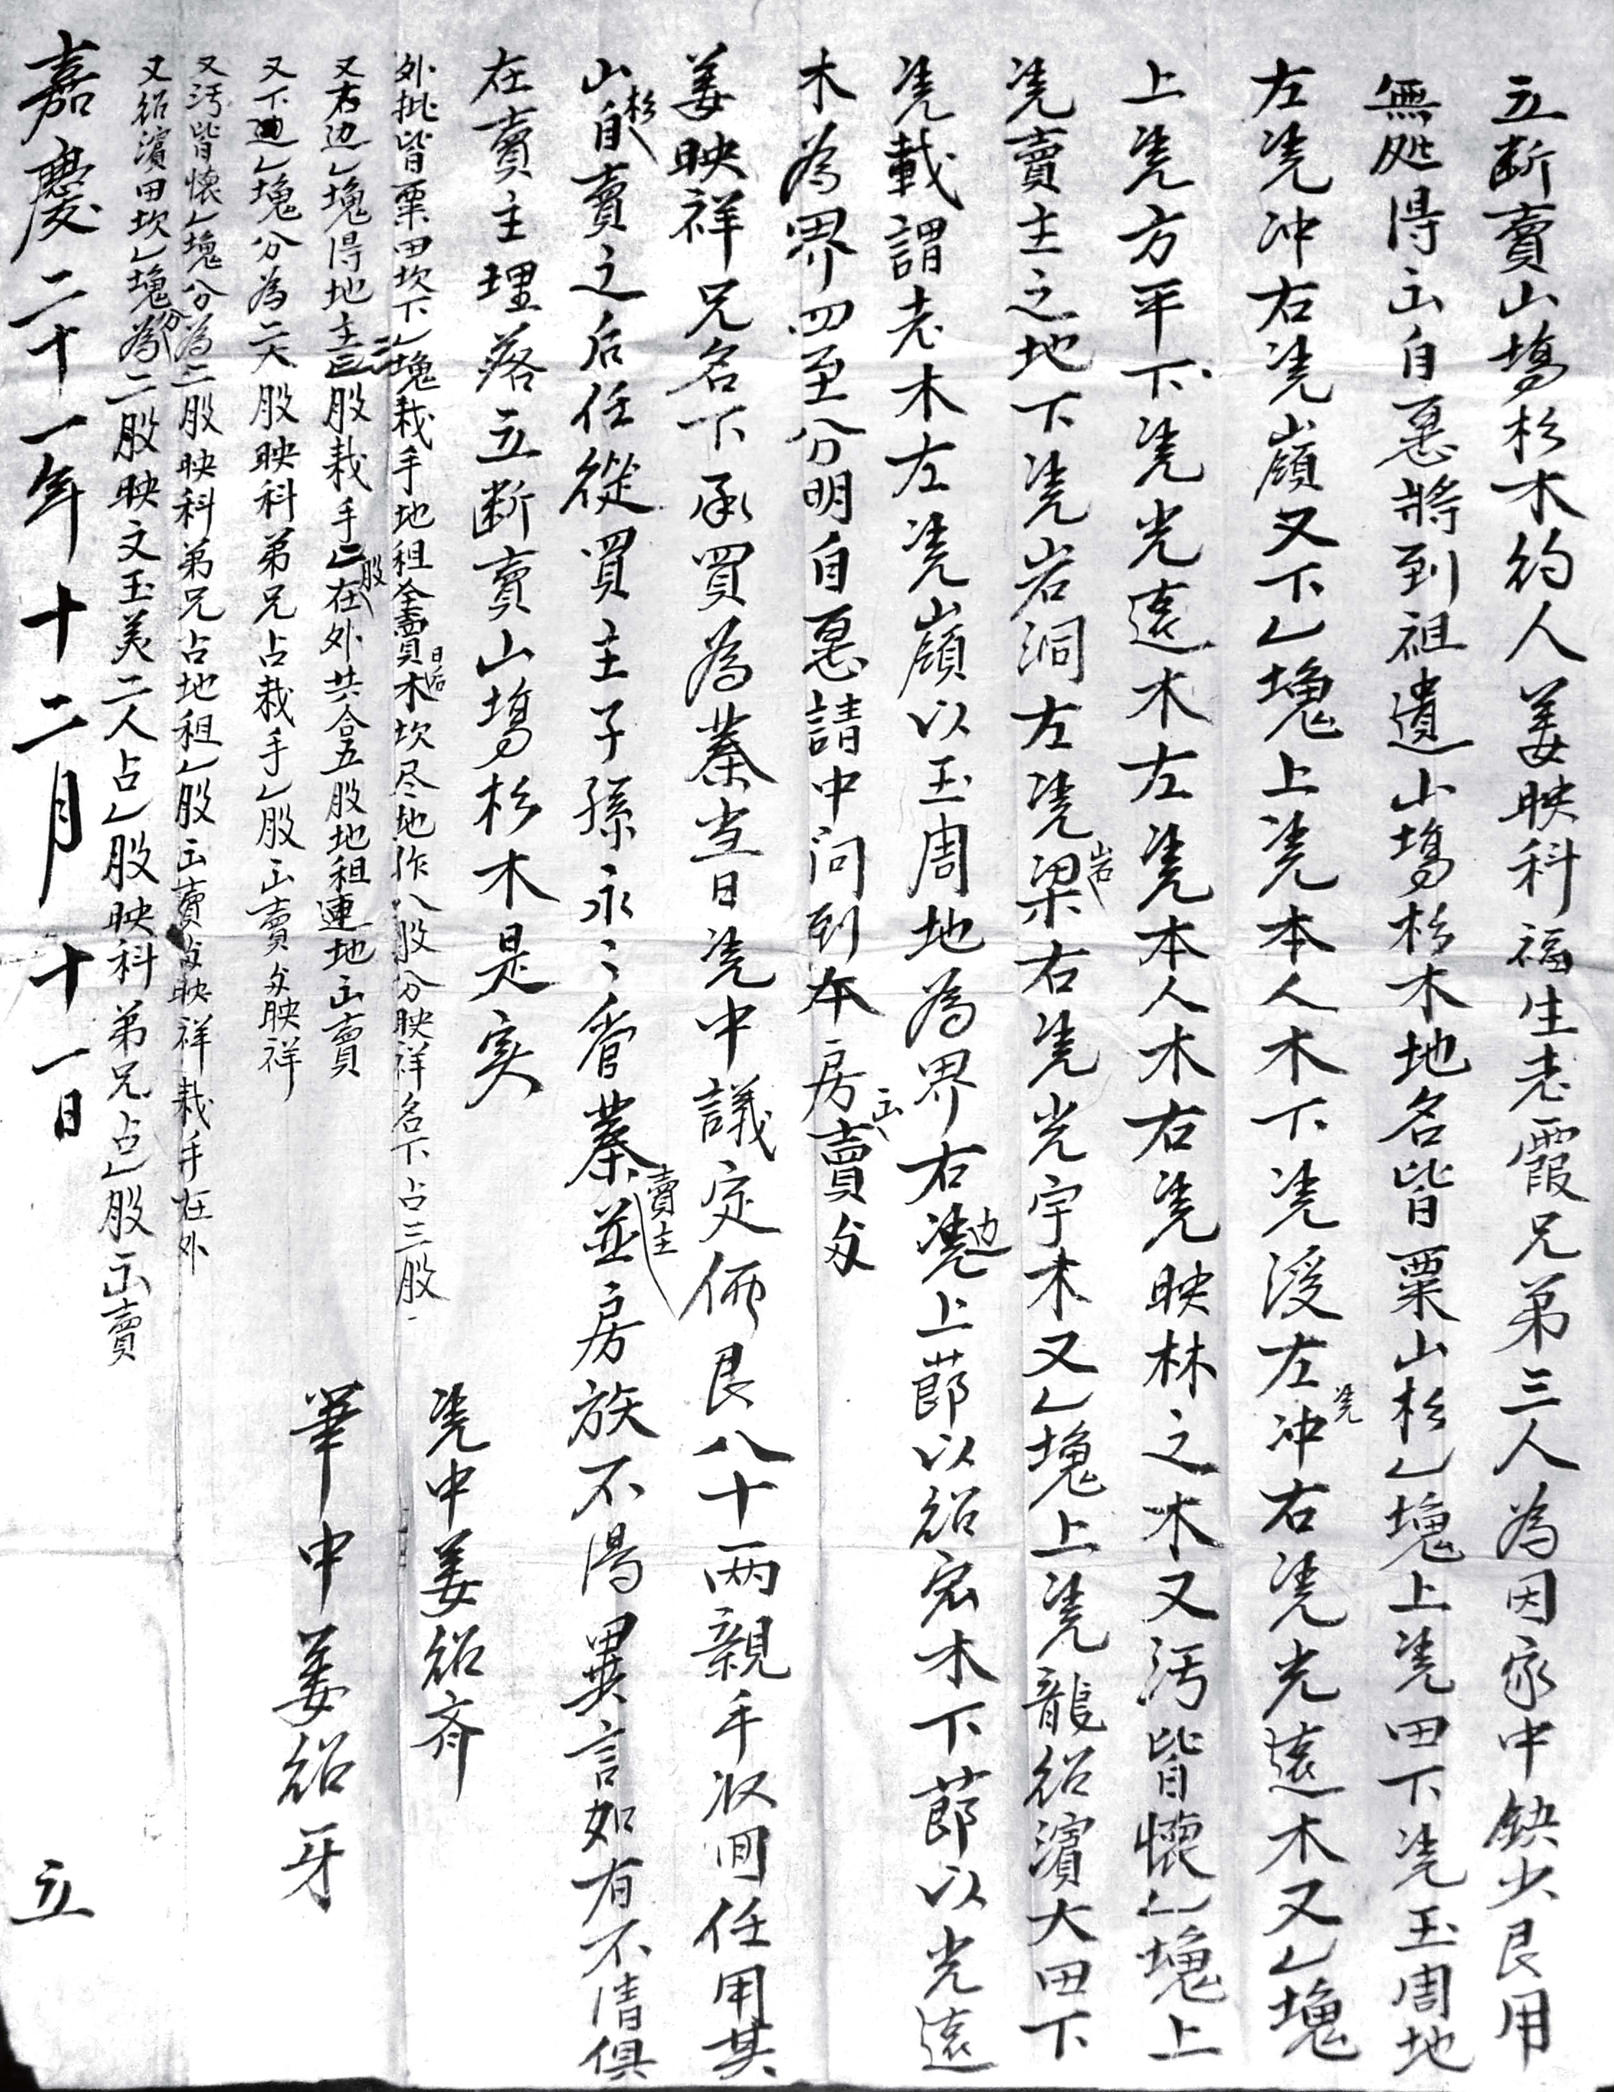 立断賣山塲杉木約人姜映科福生老霞兄弟三人為因家中缺少艮用
無処得出自愿將到祖遺山塲杉木地名皆粟山杉乙塊上凭田下凭玉周地
左凭冲右凭嶺又下乙塊上凭本人木下凭溪左凭冲右凭光遠木又乙塊
上凭方平下凭光遠木左凭本人木右凭映林之木又污皆懷乙塊上
凭賣主之地下凭岩洞左凭岩梁右凭光宇木又乙塊上凭龍紹濵大田下
凭載謂老木左凭嶺以玉周地為界右凭边上莭以紹宏木下莭以光遠
木為界四至分明自愿請中问到本房出賣与
姜映祥兄名下承買為業当日凭中議定価艮八十两親手收囬任用其
山杉自賣之后任從買主子孫永〻管業賣主並房族不淂異言如有不清俱
在賣主理落立断賣山塲杉木是实
外批皆粟田坎下乙塊栽手地租全賣日后木坎尽地作八股分映祥名下占三股
又右边乙塊得地主三股栽手二股在外共合五股地租連地出賣
又下边乙塊分為二大股映科弟兄占栽手乙股出賣与映祥
又污皆懷乙塊分為二股映科弟兄占地租乙股出賣与映祥栽手在外
又紹濵田坎乙塊分為二股映文玉美二人占乙股映科弟兄占乙股出賣
凭中姜紹齐
筆中姜紹牙
嘉慶二十一年十二月十一日 立